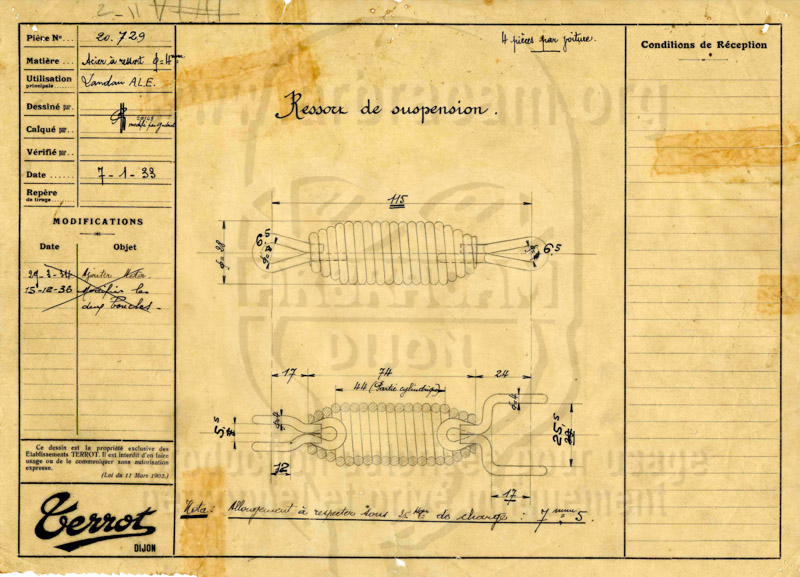 Pièce Nº... 20.729
Matière... Acier à ressort φ=4 mm
Utilisation principale... Landau A.L.E.
Dessiné par.
Calqué par..
Vérifié par..
Date...... 7-1-33
Repère de tirage...
MODIFICATIONS
Date Objet
29-3-34 Ajouter Nota.
15-12-36 Modifié les
deux boucles.
Ce dessin est la propriété exclusive des
Etablissements TERROT. Il est interdit d'en faire
usage ou de le communiquer sans autorisation
expresse.
(Loi du 11 Mars 1902.)
Terrot
DIJON
4 pièces par voiture.
Ressort de suspension.
115
φ=28
6,5
6,5
17
74
24
44 (Partie cylindrique)
φ=4
φ=4
5,5
25,5
12
17
Nota: Allongement à respecter sous 25 Kgs de charge : 7 mm 5.
Conditions de Réception